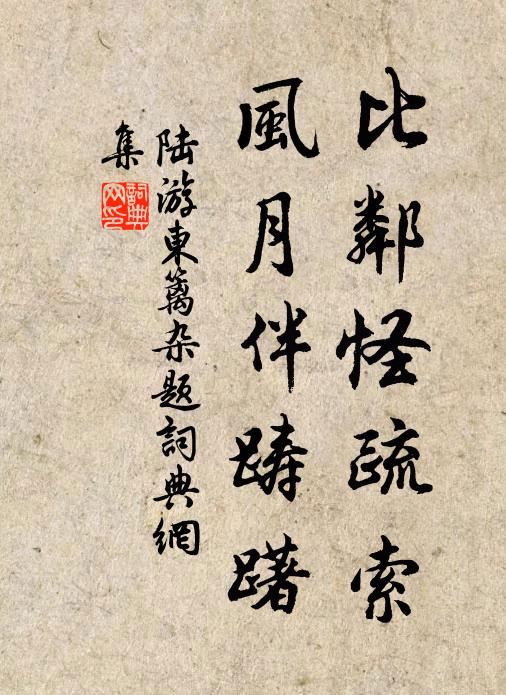 比鄰怪疏索
風月伴躊躇
陆游東籬杂题詞典網
集
詞典網印